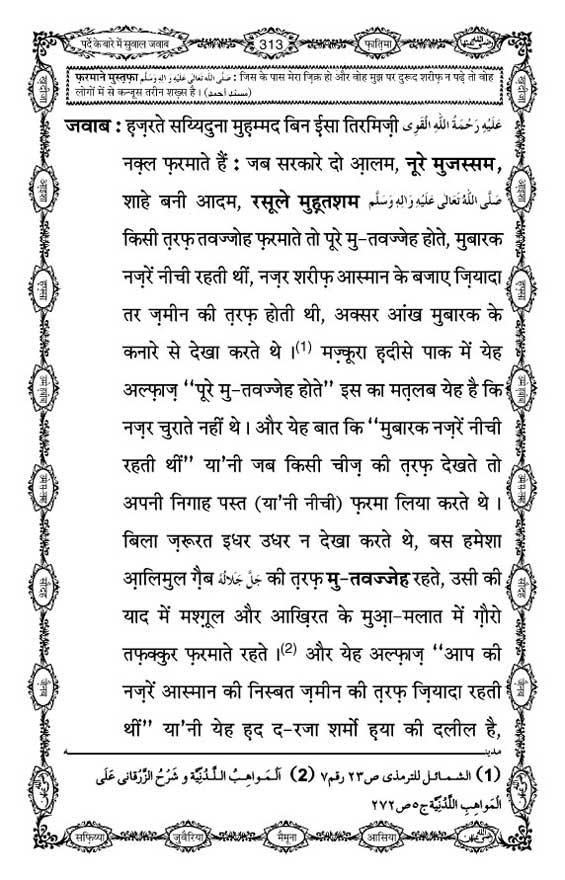 पर्दे के बारे में सुवाल जवाब
313
फ़ातिमा
फ़रमाने मुस्तफ़ा صَلَّى اللهُ تَعَالٰى عَلَيْهِ وَاٰلِهٖ وَسَلَّم : जिस के पास मेरा ज़िक्र हो और वोह मुझ पर दुरूद शरीफ़ न पढ़े तो वोह
लोगों में से कन्जूस तरीन शख़्स है । (مسند احمد)
जवाब : हज़रते सय्यिदुना मुहम्मद बिन ईसा तिरमिज़ी عَلَيْهِ رَحْمَةُ اللهِ الْقَوِى
नक़्ल फ़रमाते हैं : जब सरकारे दो आलम, नूरे मुजस्सम,
शाहे बनी आदम, रसूले मुह्तशम صَلَّى اللهُ تَعَالٰى عَلَيْهِ وَاٰلِهٖ وَسَلَّم
किसी त़रफ़ तवज्जोह फ़रमाते तो पूरे मु-तवज्जेह होते, मुबारक
नज़रें नीची रहती थीं, नज़र शरीफ़ आस्मान के बजाए ज़ियादा
तर ज़मीन की त़रफ़ होती थी, अक्सर आंख मुबारक के
कनारे से देखा करते थे ।(1) मज़्कूरा ह़दीसे पाक में येह
अल्फ़ाज़ “पूरे मु-तवज्जेह होते” इस का मत़लब येह है कि
नज़र चुराते नहीं थे । और येह बात कि “मुबारक नज़रें नीची
रहती थीं” या'नी जब किसी चीज़ की त़रफ़ देखते तो
अपनी निगाह पस्त (या'नी नीची) फ़रमा लिया करते थे ।
बिला ज़रूरत इधर उधर न देखा करते थे, बस हमेशा
आ़लिमुल ग़ैब جَلَّ جَلَالُهٗ की त़रफ़ मु-तवज्जेह रहते, उसी की
याद में मश्ग़ूल और आख़िरत के मुआ़-मलात में ग़ौरो
तफ़क्कुर फ़रमाते रहते ।(2) और येह अल्फ़ाज़ “आप की
नज़रें आस्मान की निस्बत ज़मीन की त़रफ़ ज़ियादा रहती
थीं” या'नी येह ह़द द-रजा शर्मो ह़या की दलील है,
مدينه
(1) الشمائل للترمذی ص۲۳ رقم۷ (2) اَلْمَواهِبُ اللَّدُنِيَّة و شَرْحُ الزَّرْقانی عَلَی
الْمَواهِبِ اللَّدُنِيَّة ج۵ ص۲۷۲
सफ़िय्या
जुवैरिया
मैमूना
आसिया